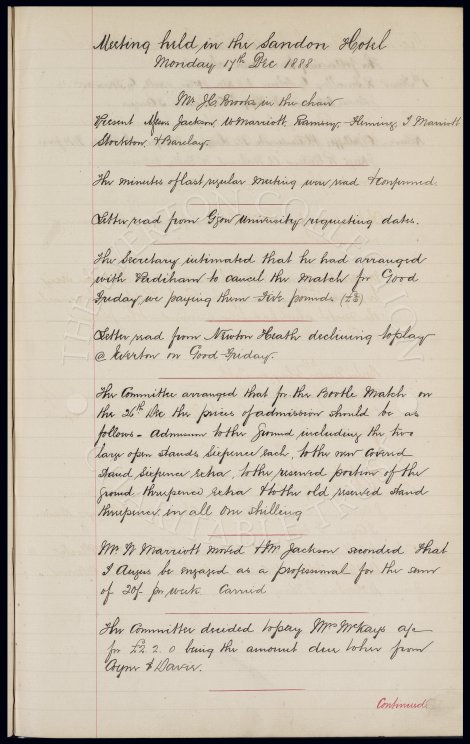 Meeting held in the Sandon Hotel
Monday 17th Dec 1888
Mr J C Brooks in the chair
Present Messrs Jackson, W Marriott, Ramsey, Fleming, T Marriott
Stockton, & Barclay.
The minutes of last regular meeting were read & confirmed.
Letter read from University requesting dates.
The Secretary intimated that he had arranged
with Padiham to cancel the match for Good
Friday, we paying them Five pounds (£5)
Letter read from Newton Heath declining to play
@ Everton on Good Friday.
The Committee arranged that for the Bootle Match on
the 26th Dec the prices of admission should be as
follows - Admission to the Ground including the two
large open stands Sixpence each, to the new covered
stand Sixpence extra, to the reserved portion of the
ground threepence extra & to the old reserved stand
threepence, in all One shilling
Mr W Marriott moved & Mr Jackson seconded that
J Angus be engaged as a professional for the sum
of 20/- per week Carried
The Committee decided to pay Mrs McKays a/c
for £2.2.0 being the amount due to her from
Coyne & Davies.
Continued
THE EVERTON COLLECTION
CHARITABLE TRUST